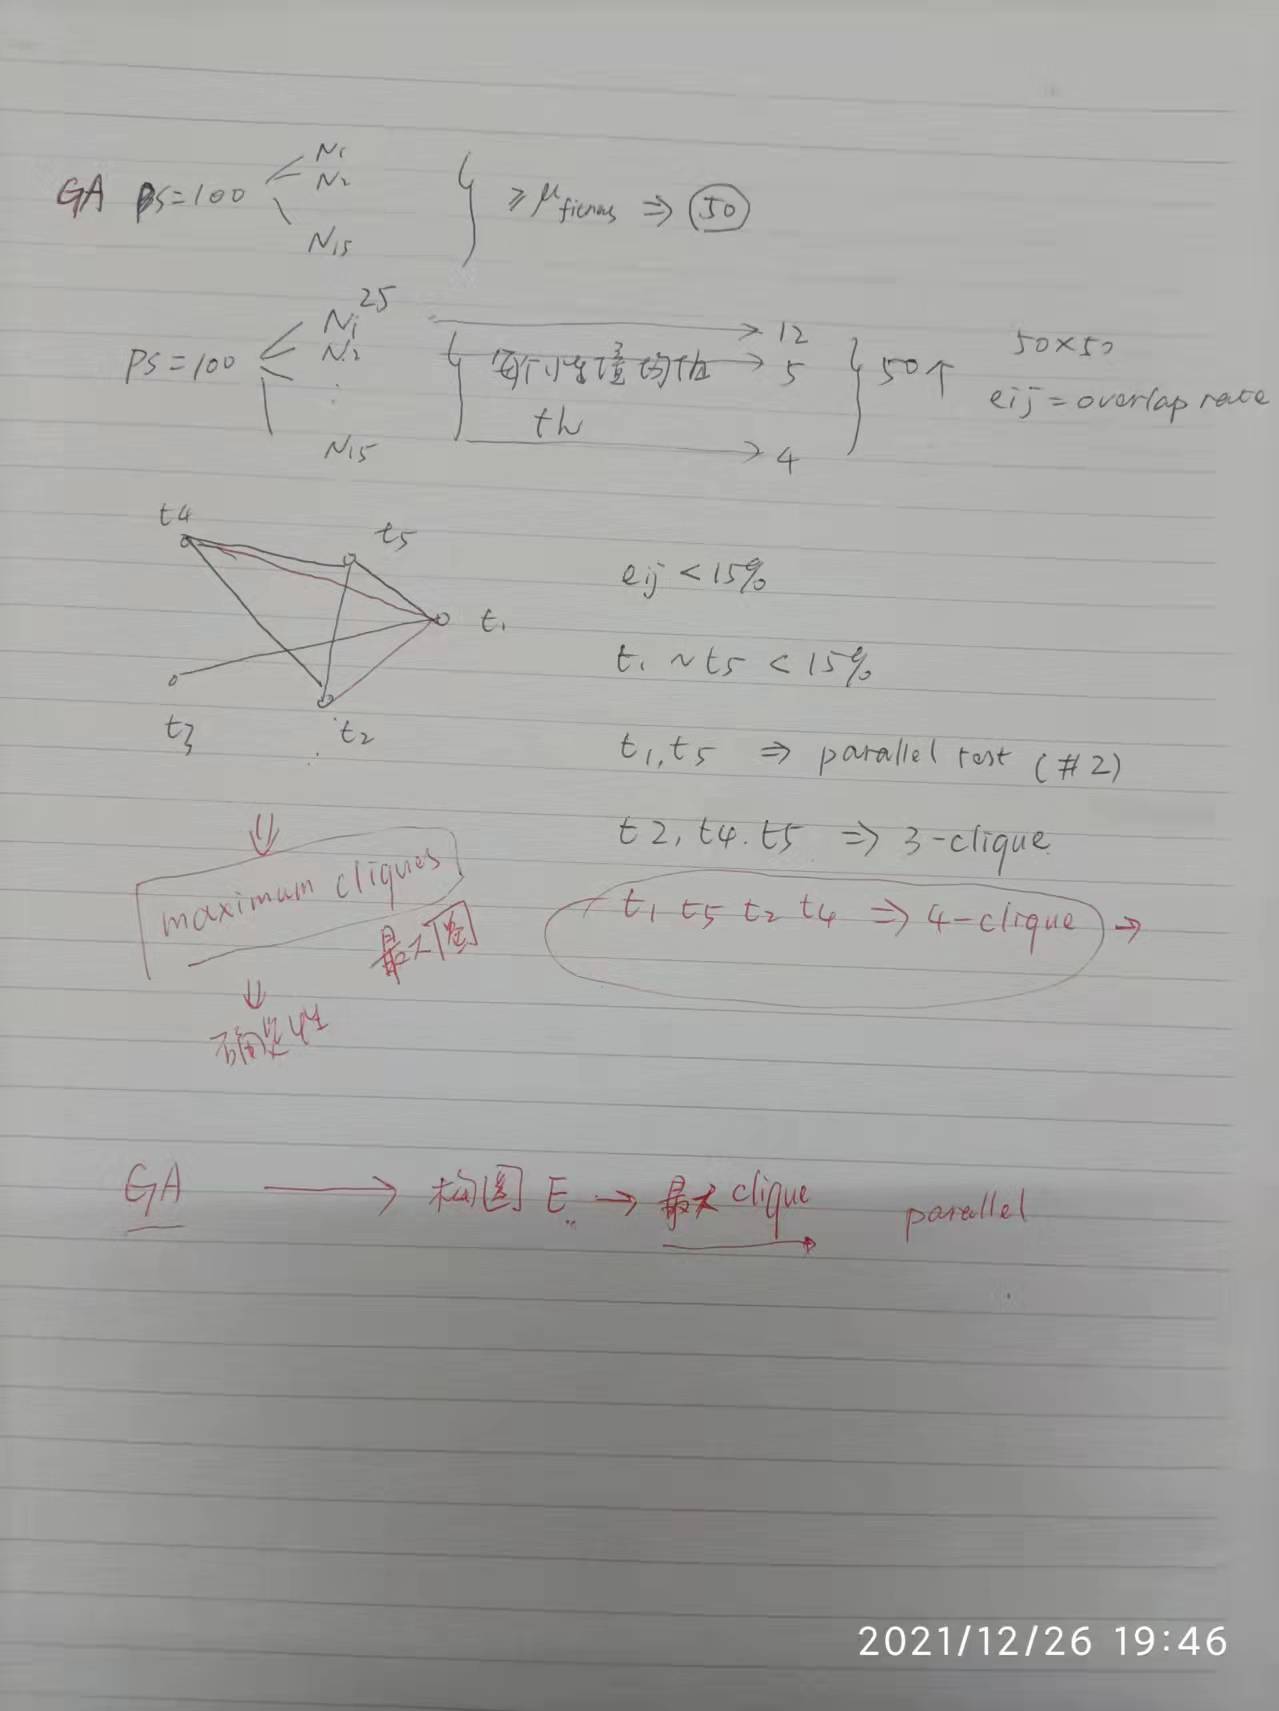 GA PS=100 N1
N2
N15
≥ μ fitness ⇒ 50
PS=100 N1 25
N2
N15
每个小生境均值
th
12
5
4
50个
50×50
eij = overlap rate
t4
t5
t1
t3
t2
eij < 15%
t1 ~ t5 < 15%
t1, t5 ⇒ parallel test (#2)
t2, t4. t5 ⇒ 3-clique
t1 t5 t2 t4 ⇒ 4-clique →
⇓
maximum cliques
最大团
⇓
确定性
GA → 构图 E → 最大 clique parallel
2021/12/26 19:46